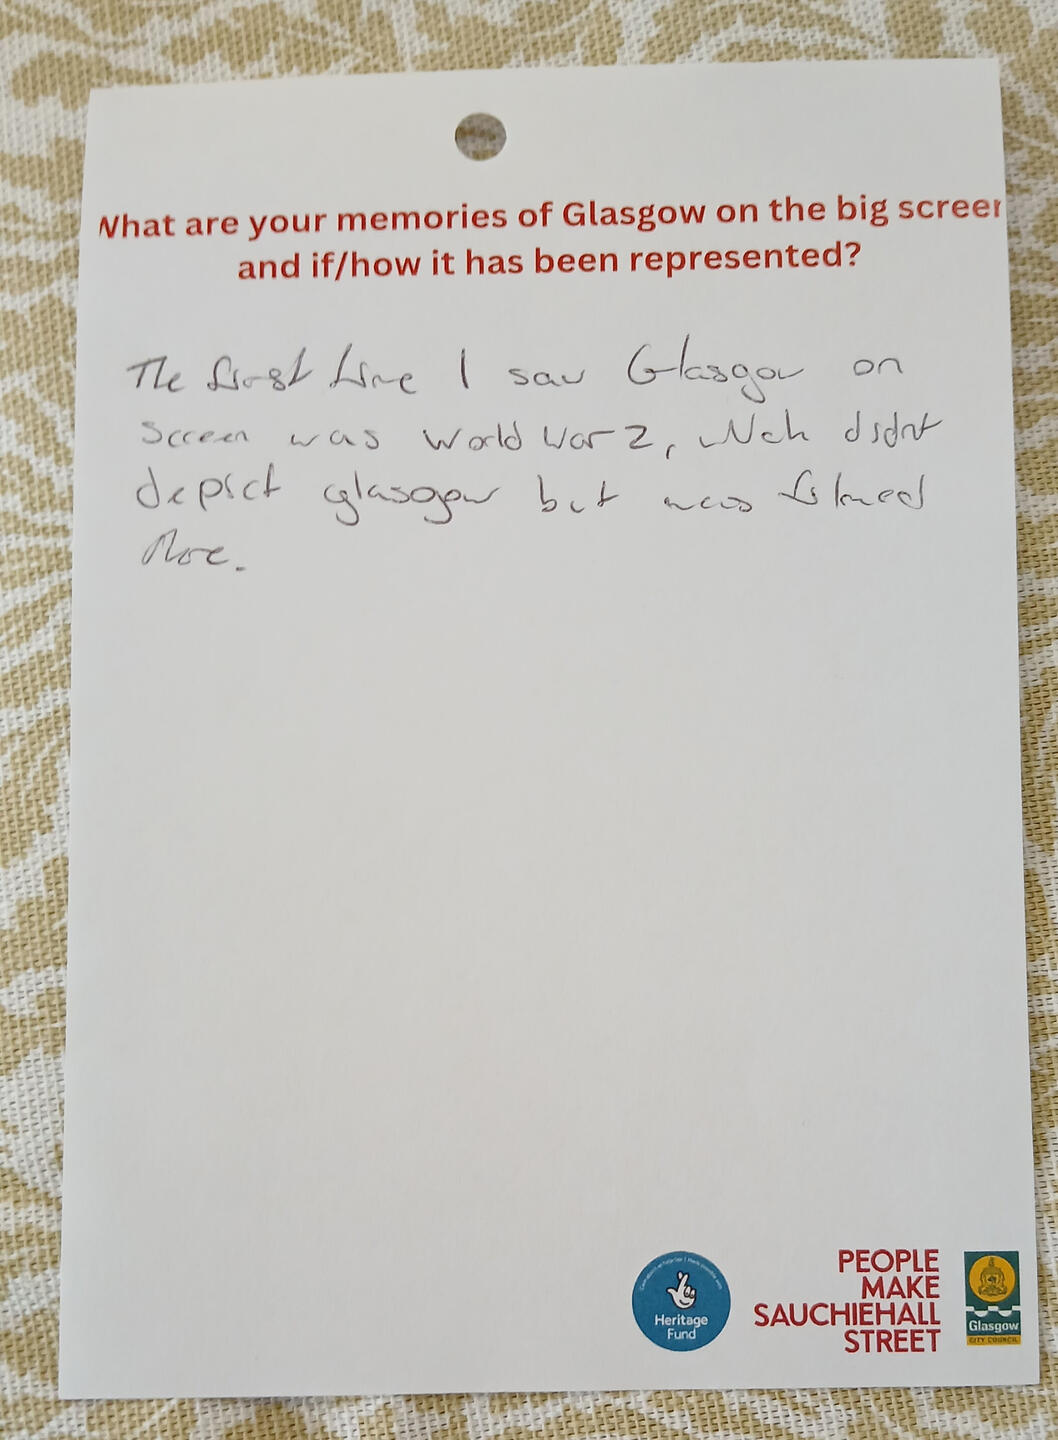 What are your memories of Glasgow on the big screen
and if/how it has been represented?
The first time I saw Glasgow on
screen was World War Z, which didnt
depict glasgow but was filmed
there.
Heritage
Fund
PEOPLE
MAKE
SAUCHIEHALL
STREET
Glasgow
CITY COUNCIL